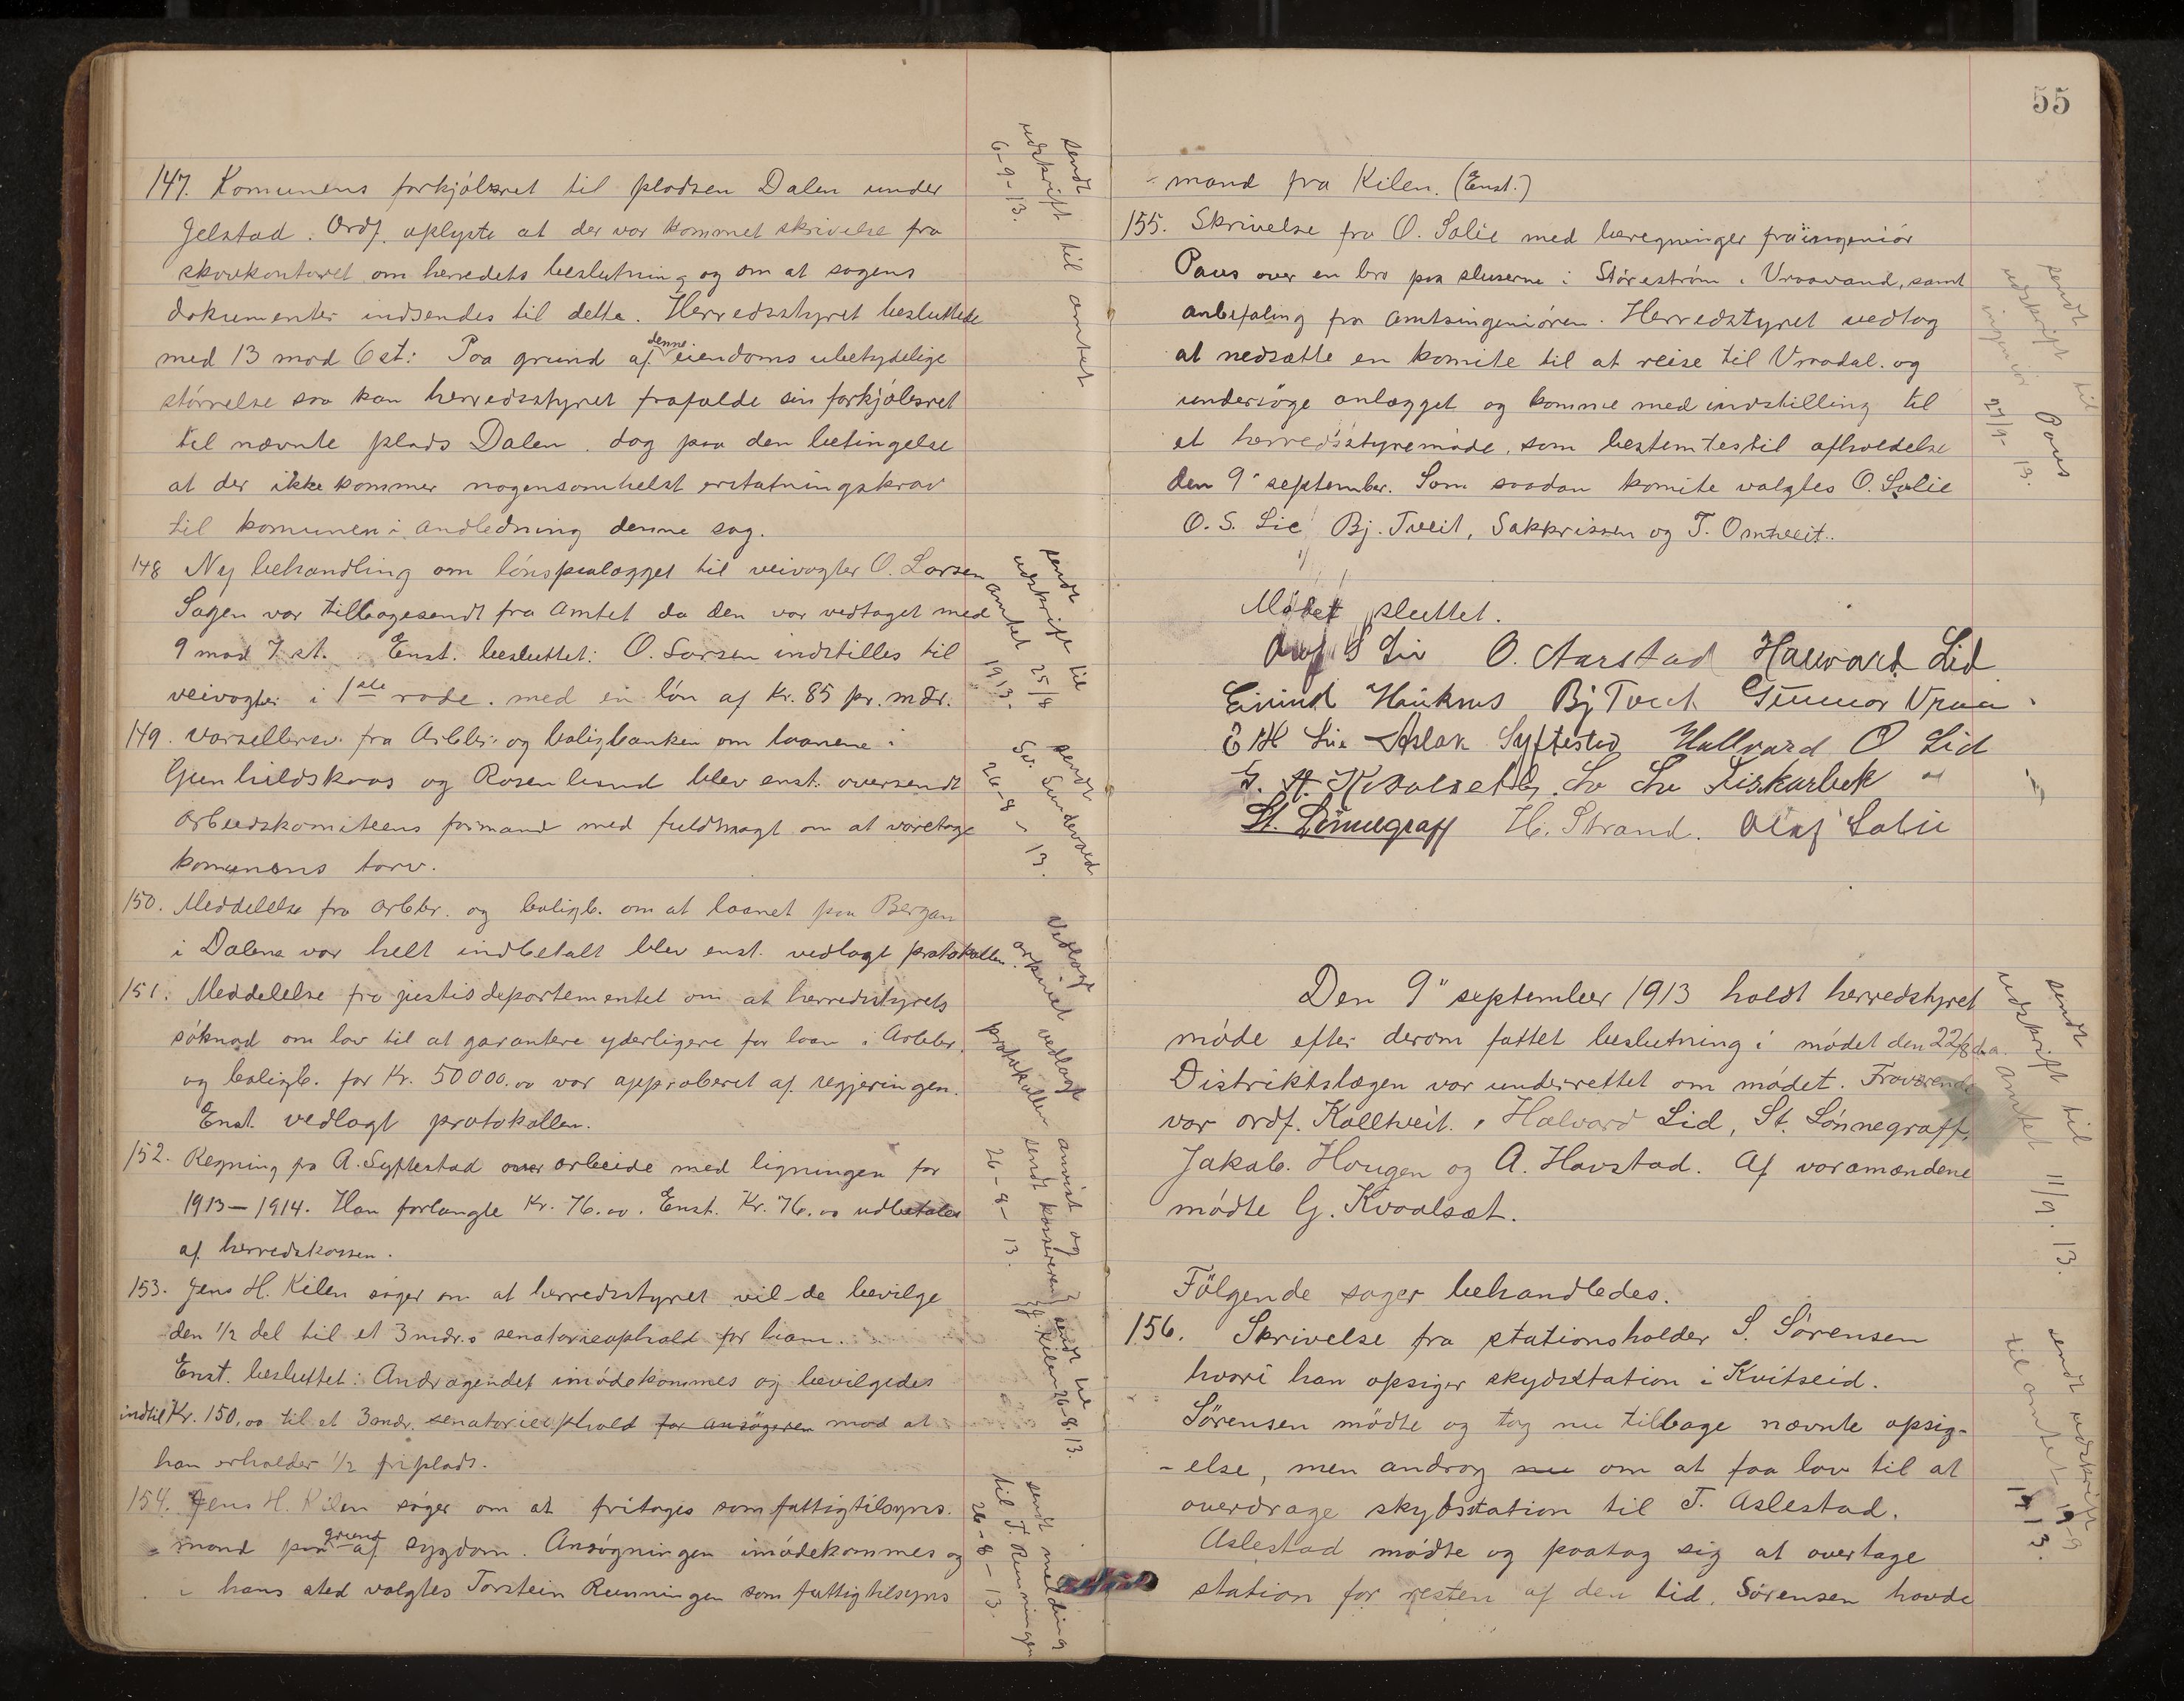 147. Komunens forkjöbsret til pladsen Dalen under
Jelstad. Ordf. oplyste at der var kommet skrivelse fra
skovkontoret om herredets beslutning og om at sagens
dokumenter indsendes til dette. Herredsstyret besluttede
med 13 mod 6 st: Paa grund af denne eiendoms ubetydelige
störrelse saa kan herredsstyret frafalde sin forkjöbsret
til nævnte plads Dalen. dog paa den betingelse
at der ikke kommer nogensomhelst erstatningskrav
til komunen i andledning denne sag.
sendt udskrift til amtet
6-9-13.
148 Ny behandling om lönspaalægget til veivogter O. Larsen
Sagen var tilbagesendt fra Amtet da den var vedtaget med
9 mod 7 st. Enst. besluttet: O. Larsen indstilles til
veivogter i 1ste rode. med en lön af Kr. 85 pr. mdr.
sendt udskrift til
amtet 25/8
1913.
149. Varsellbrev fra Arbbr. og boligbanken om laanene i
Gunhildskaas og Rosenlund blev enst. oversendt
Arbeidskomiteens formand med fuldmagt om at varetage
komunens tarv.
sendt
Sv. Sundevald
26-8-13.
150. Meddelelse fra arbbr. og boligb. om at laanet paa Bergan
i Dalene var helt indbetalt blev enst. vedlagt protokollen.
Vedlagt
arkivet
151. Meddelelse fra justisdepartementet om at herredsstyrets
söknad om lov til at garantere yderligere for laan i Arbbr.
og boligb. for Kr. 50000.00 var approberet af regjeringen.
Enst. vedlagt protokollen.
vedlagt
protokollen
152. Regning fra A. Syftestad over arbeide med ligningen for
1913-1914. Han forlangte Kr. 76.00. Enst. Kr. 76.00 udbetales
af herredskassen.
anvist og
sendt kassereren
26-8-13.
153. Jens H. Kilen söger om at herredsstyret vil de bevilge
den 1/2 del til et 3 mdr.s senatorieophold for ham.
Enst. besluttet: Andragendet imödekommes og bevilgedes
indtil Kr. 150,00 til et 3 mdr. senatorieophold for ansögeren mod at
han erholder 1/2 friplads.
sendt til
J. Kilen 26-8.13.
154. Jens H. Kilen söger om at fritages som fattigtilsyns.
mand paa grund af sygdom. Ansögningen imödekommes og
i hans sted valgtes Torstein Rünningen som fattigtilsyns
sendt melding
til T. Rünningen
26-8-13.
55
mand fra Kilen. (Enst.)
155. Skrivelse fra O. Salie med beregninger fra ingeniör
Paus over en bro paa sluserne i Störeström i Vraavand, samt
anbefaling fra amtsingeniören. Herredstyret vedtog
at nedsætte en komite til at reise til Vraadal og
undersöge anlægget og komme med indstilling til
et herredsstyremöde, som bestemtes til afholdelse
den 9" september. Som saadan komite valgtes O. Salie
O. S. Lie Bj. Tveit, Sakkrissen og T. Omtveit.
sendt til
udskrift Paus
ingeniör
27/9-13.
Mödet sluttet.
Olaf S Lie O. Aarstad Halvard Lid
Eivind Haukaas Bj Tveit Gunnar Vraa
E H Lie Aslak Syftestad Hallvard O Lid
St. Lönnegraff H. Strand. Olaf Salie
Den 9" september 1913 holdt herredstyret
möde efter derom fattet beslutning i mödet den 22/8 d.a.
Distriktslægen var underrettet om mödet. Fraværende
var ordf. Kalltveit. Halvard Lid, St. Lönnegraff,
Jakob. Hougen og A. Havstad. Af varamændene
mödte G. Kvaalsæt.
sendt
udskrift til
amtet 11/9.13.
Fölgende sager behandledes.
156. Skrivelse fra stationsholder S. Sörensen
hvori han opsiger skydsstation i Kvitseid.
Sörensen mödte og tog nu tilbage nævnte opsig-
-else, men androg om at faa lov til at
overdrage skydsstation til T. Aslestad.
Aslestad mödte og paatog sig at overtage
station for resten af den tid, Sörensen havde
sendt udskrift
til amtet 19-9
1913.